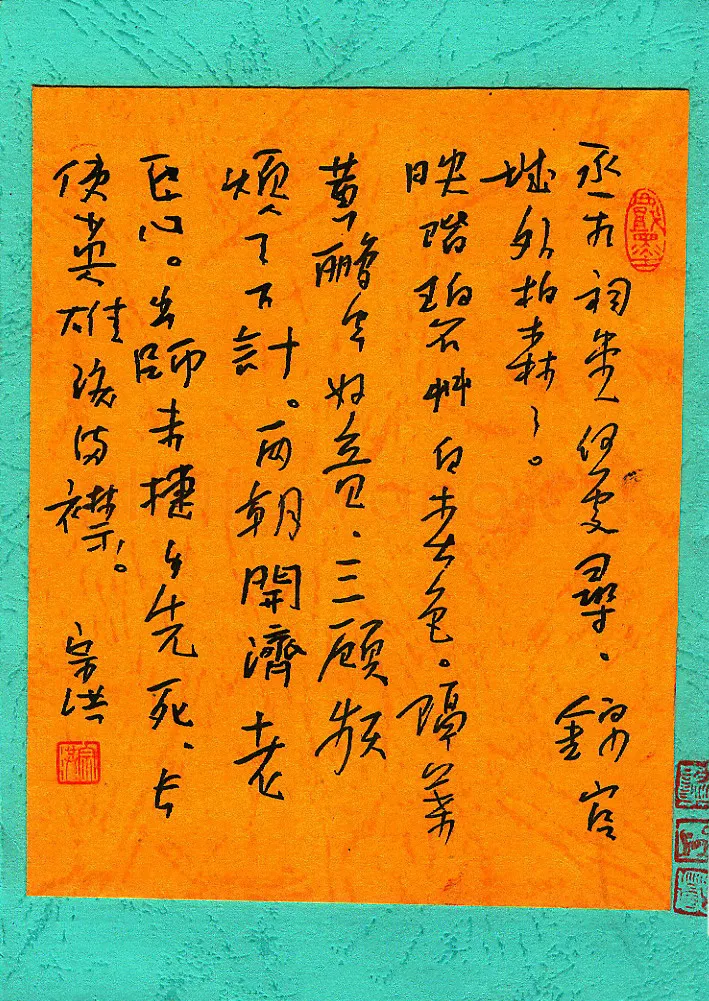 戲墨
丞相祠堂何處尋、錦官
城外柏森々。
映階碧艸自春色。隔葉
黄鸝空好音、三顧頻
煩天下計。両朝開濟老
臣心。出師未捷身先死、長
使英雄淚滿襟。
宗洪
宗洪